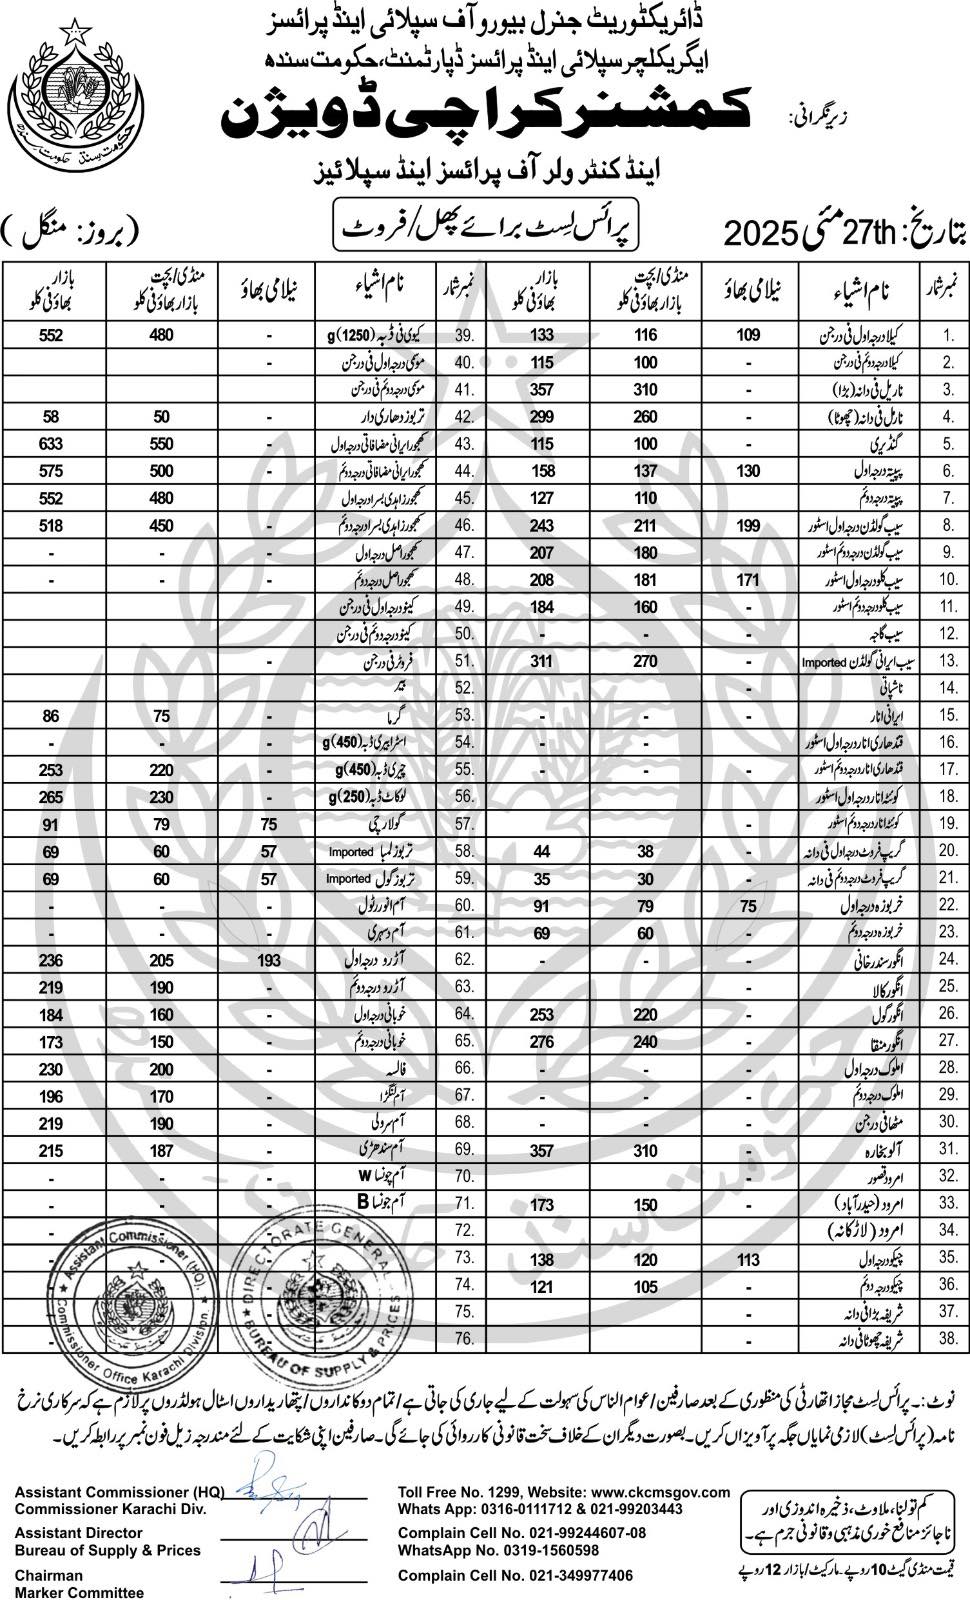 ڈائریکٹوریٹ جنرل بیورو آف سپلائی اینڈ پرائسز
ایگریکلچر سپلائی اینڈ پرائسز ڈپارٹمنٹ، حکومت سندھ
زیر نگرانی: کمشنر کراچی ڈویژن
اینڈ کنٹرولر آف پرائسز اینڈ سپلائیز
بتاریخ: 27th مئی 2025 پرائس لسٹ برائے پھل/فروٹ (بروز: منگل)
نمبر شمار نام اشیاء نیلامی بھاؤ منڈی/بچت بازار بھاؤ فی کلو بازار بھاؤ فی کلو نمبر شمار نام اشیاء نیلامی بھاؤ منڈی/بچت بازار بھاؤ فی کلو بازار بھاؤ فی کلو
1. کیلا درجہ اول فی درجن 109 116 133 39. کیوی فی ڈبہ (1250)g - 480 552
2. کیلا درجہ دوئم فی درجن - 100 115 40. موسمی درجہ اول فی درجن -
3. ناریل فی دانہ (بڑا) - 310 357 41. موسمی درجہ دوئم فی درجن
4. ناریل فی دانہ (چھوٹا) - 260 299 42. تربوز دھاری دار - 50 58
5. گنڈیری - 100 115 43. کھجور ایرانی مضافاتی درجہ اول - 550 633
6. پپیتہ درجہ اول 130 137 158 44. کھجور ایرانی مضافاتی درجہ دوئم - 500 575
7. پپیتہ درجہ دوئم - 110 127 45. کھجور زاہدی بسرا درجہ اول - 480 552
8. سیب گولڈن درجہ اول اسٹور 199 211 243 46. کھجور زاہدی بسرا درجہ دوئم - 450 518
9. سیب گولڈن درجہ دوئم اسٹور - 180 207 47. کھجور اصل درجہ اول - - -
10. سیب کلو درجہ اول اسٹور 171 181 208 48. کھجور اصل درجہ دوئم - - -
11. سیب کلو درجہ دوئم اسٹور - 160 184 49. کینو درجہ اول فی درجن -
12. سیب گاجہ - - - 50. کینو درجہ دوئم فی درجن
13. سیب ایرانی گولڈن Imported - 270 311 51. فروٹر فی درجن -
14. ناشپاتی - 52. بیر
15. ایرانی انار - - - 53. گرما - 75 86
16. قندھاری انار درجہ اول اسٹور - - - 54. اسٹرابیری ڈبہ (450)g - - -
17. قندھاری انار درجہ دوئم اسٹور - - - 55. چیری ڈبہ (450)g - 220 253
18. کوئٹہ انار درجہ اول اسٹور 56. لوکاٹ ڈبہ (250)g - 230 265
19. کوئٹہ انار درجہ دوئم اسٹور - 57. گولارچی 75 79 91
20. گریپ فروٹ درجہ اول فی دانہ - 38 44 58. تربوز لمبا Imported 57 60 69
21. گریپ فروٹ درجہ دوئم فی دانہ - 30 35 59. تربوز گول Imported 57 60 69
22. خربوزہ درجہ اول 75 79 91 60. آم انور رٹول - - -
23. خربوزہ درجہ دوئم - 60 69 61. آم دسہری - - -
24. انگور سندر خانی - - - 62. آڑو درجہ اول 193 205 236
25. انگور کالا 63. آڑو درجہ دوئم - 190 219
26. انگور گول - 220 253 64. خوبانی درجہ اول - 160 184
27. انگور منقا - 240 276 65. خوبانی درجہ دوئم - 150 173
28. املوک درجہ اول - - - 66. فالسہ - 200 230
29. املوک درجہ دوئم - - - 67. آم لنگڑا - 170 196
30. مٹھا فی درجن - - - 68. آم سرولی - 190 219
31. آلو بخارہ - 310 357 69. آم سندھڑی - 187 215
32. امرود قصور - 70. آم چونسا W - - -
33. امرود (حیدرآباد) - 150 173 71. آم چونسا B - - -
34. امرود (لاڑکانہ) 72. - -
35. چیکو درجہ اول 113 120 138 73. -
36. چیکو درجہ دوئم - 105 121 74. -
37. شریفہ بڑا فی دانہ - 75. -
38. شریفہ چھوٹا فی دانہ - 76. - -
Assistant Commissioner (HQ). Commissioner Office Karachi Division.
DIRECTORATE GENERAL BUREAU OF SUPPLY & PRICES
نوٹ:۔ پرائس لسٹ مجاز اتھارٹی کی منظوری کے بعد صارفین/عوام الناس کی سہولت کے لیے جاری کی جاتی ہے/تمام دوکانداروں/پتھاریداروں اسٹال ہولڈروں پر لازم ہے کہ سرکاری نرخ
نامہ (پرائس لسٹ) لازمی نمایاں جگہ پر آویزاں کریں۔ بصورت دیگر ان کے خلاف سخت قانونی کارروائی کی جائے گی۔ صارفین اپنی شکایت کے لئے مندرجہ زیل فون نمبر پر رابطہ کریں۔
Assistant Commissioner (HQ)
Commissioner Karachi Div.
Assistant Director
Bureau of Supply & Prices
Chairman
Marker Committee
Toll Free No. 1299, Website: www.ckcmsgov.com
Whats App: 0316-0111712 & 021-99203443
Complain Cell No. 021-99244607-08
WhatsApp No. 0319-1560598
Complain Cell No. 021-349977406
کم تولنا، ملاوٹ، ذخیرہ اندوزی اور
ناجائز منافع خوری مذہبی و قانونی جرم ہے۔
قیمت منڈی گیٹ 10 روپے۔ مارکیٹ/بازار 12 روپے